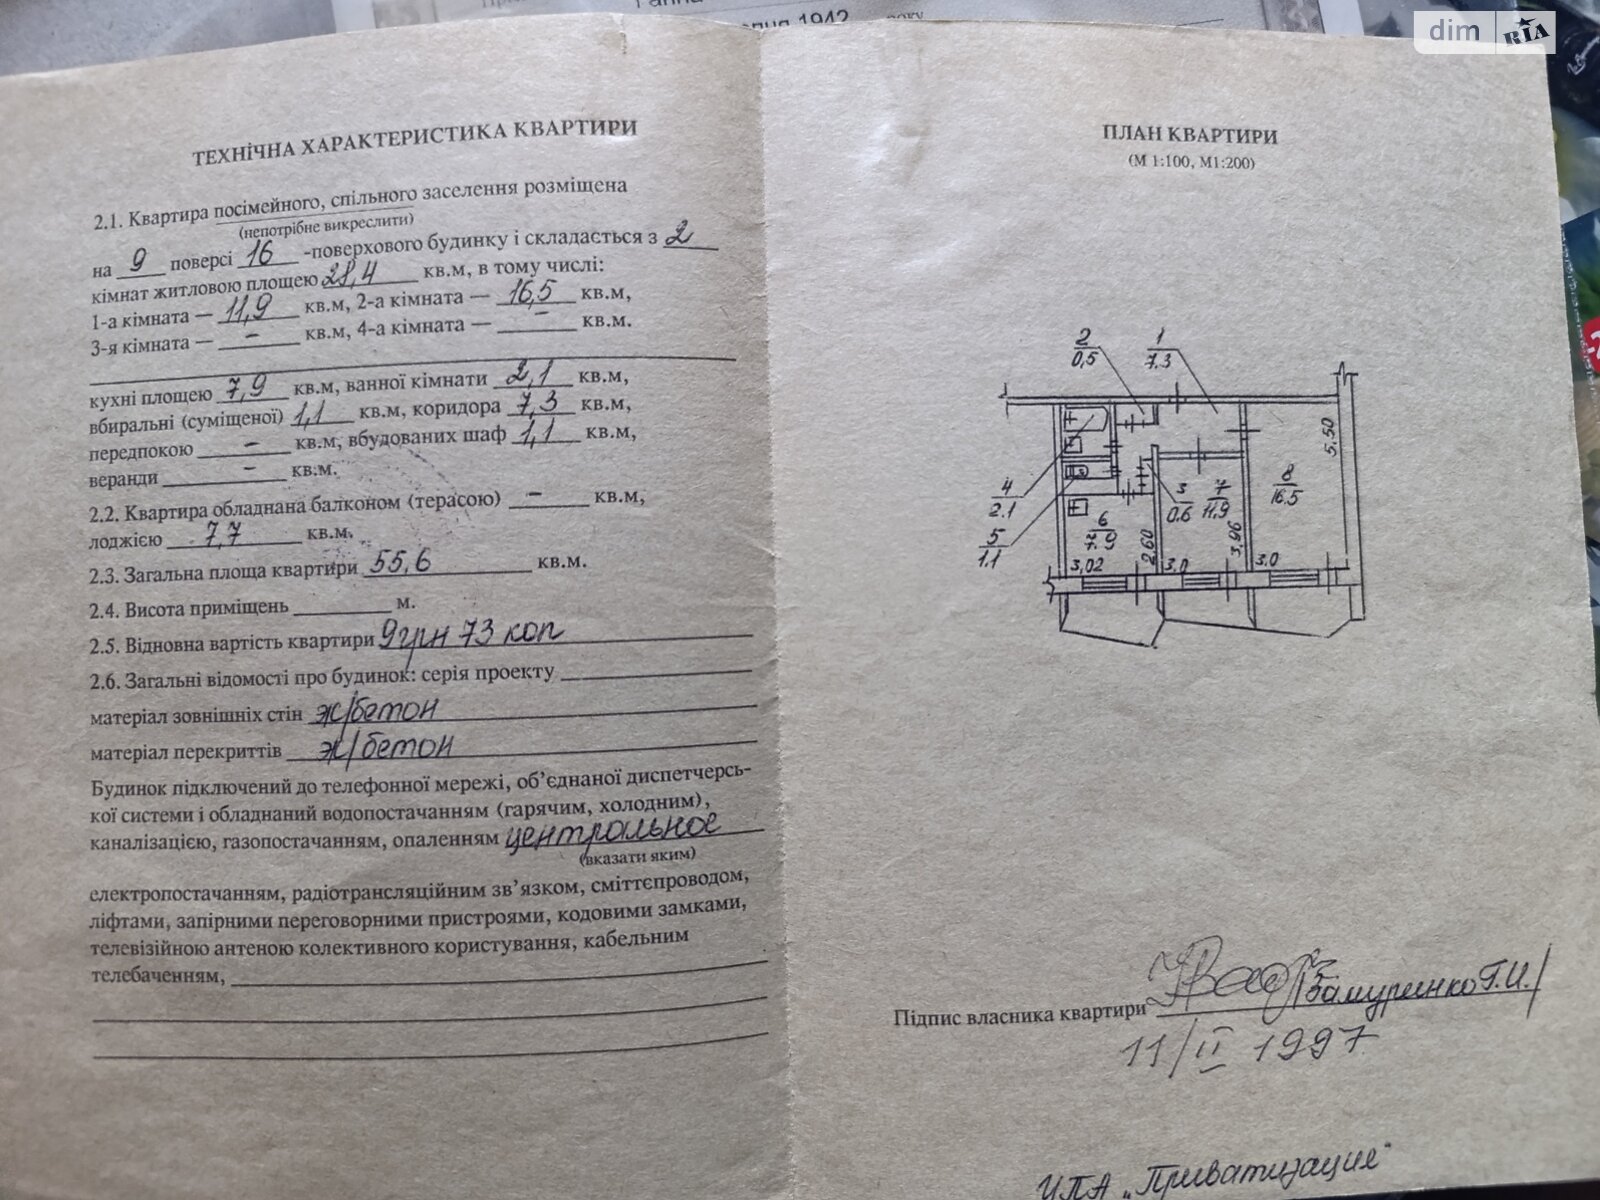 1942 року
dim RIA
ТЕХНІЧНА ХАРАКТЕРИСТИКА КВАРТИРИ
2.1. Квартира посімейного, спільного заселення розміщена
(непотрібне викреслити)
на 9 поверсі 16 -поверхового будинку і складається з 2
кімнат житловою площею 28,4 кв.м, в тому числі:
1-а кімната — 11,9 кв.м, 2-а кімната — 16,5 кв.м,
3-я кімната — – кв.м, 4-а кімната — – кв.м.
кухні площею 7,9 кв.м, ванної кімнати 2,1 кв.м,
вбиральні (суміщеної) 1,1 кв.м, коридора 7,3 кв.м,
передпокою – кв.м, вбудованих шаф 1,1 кв.м,
веранди – кв.м.
2.2. Квартира обладнана балконом (терасою) – кв.м,
лоджією 7,7 кв.м.
2.3. Загальна площа квартири 55,6 кв.м.
2.4. Висота приміщень м.
2.5. Відновна вартість квартири 9грн 73 коп
2.6. Загальні відомості про будинок: серія проекту
матеріал зовнішніх стін ж/бетон
матеріал перекриттів ж/бетон
Будинок підключений до телефонної мережі, об’єднаної диспетчерсь-
кої системи і обладнаний водопостачанням (гарячим, холодним),
каналізацією, газопостачанням, опаленням центральное
(вказати яким)
електропостачанням, радіотрансляційним зв’язком, сміттєпроводом,
ліфтами, запірними переговорними пристроями, кодовими замками,
телевізійною антеною колективного користування, кабельним
телебаченням,
ПЛАН КВАРТИРИ
(М 1:100, М1:200)
2 1
0,5 7.3
5,50
4 3 7 8
2.1 0.6 11.9 16.5
5 6
1.1 7.9
2.60 3,96
3,02 3,0 3.0
Підпис власника квартири Г.И./
11/II 1997
ЧПА „Приватизация"